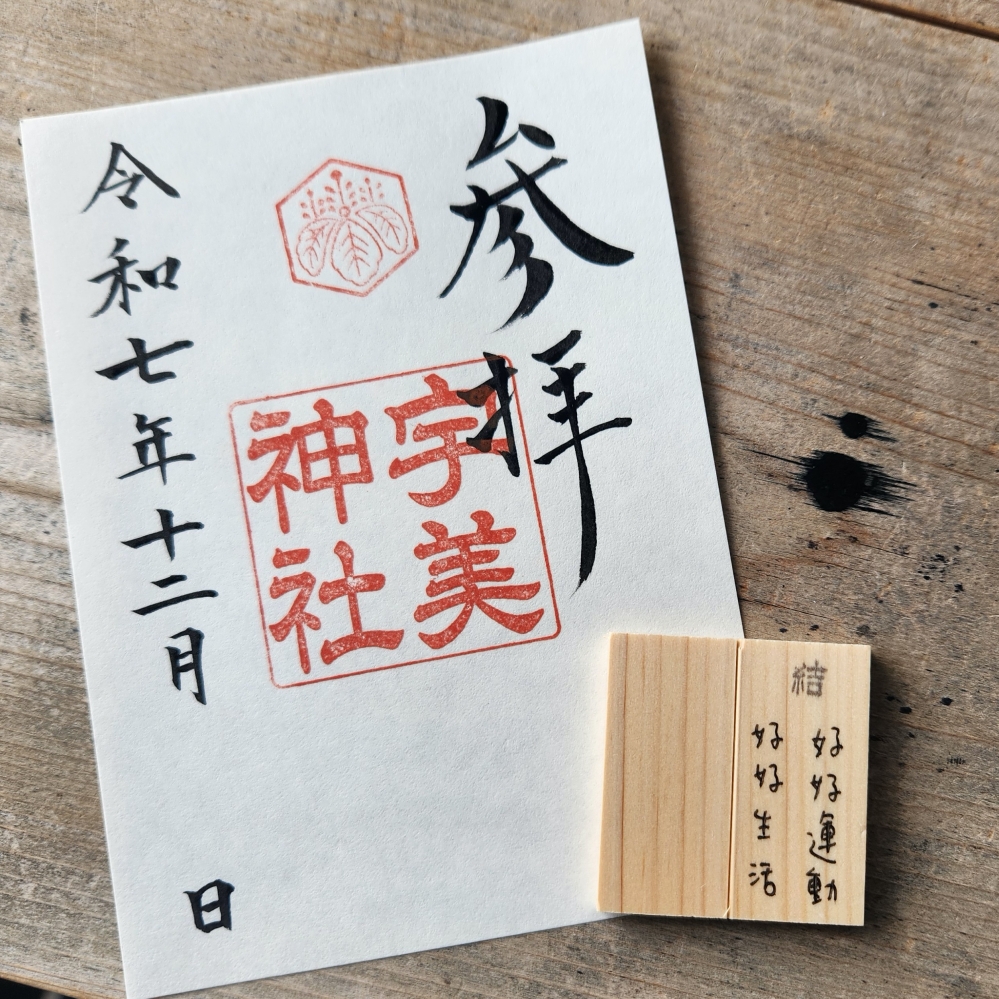 参拝
宇美
神社
令和七年十二月 日
結
好好運動
好好生活